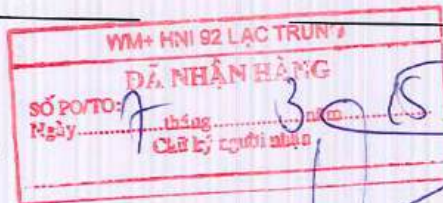 WM+ HNI 92 LẠC TRUNG
ĐÃ NHẬN HÀNG
SỐ PO/TO:
Ngày 7 tháng 3 năm
Chữ ký người nhận